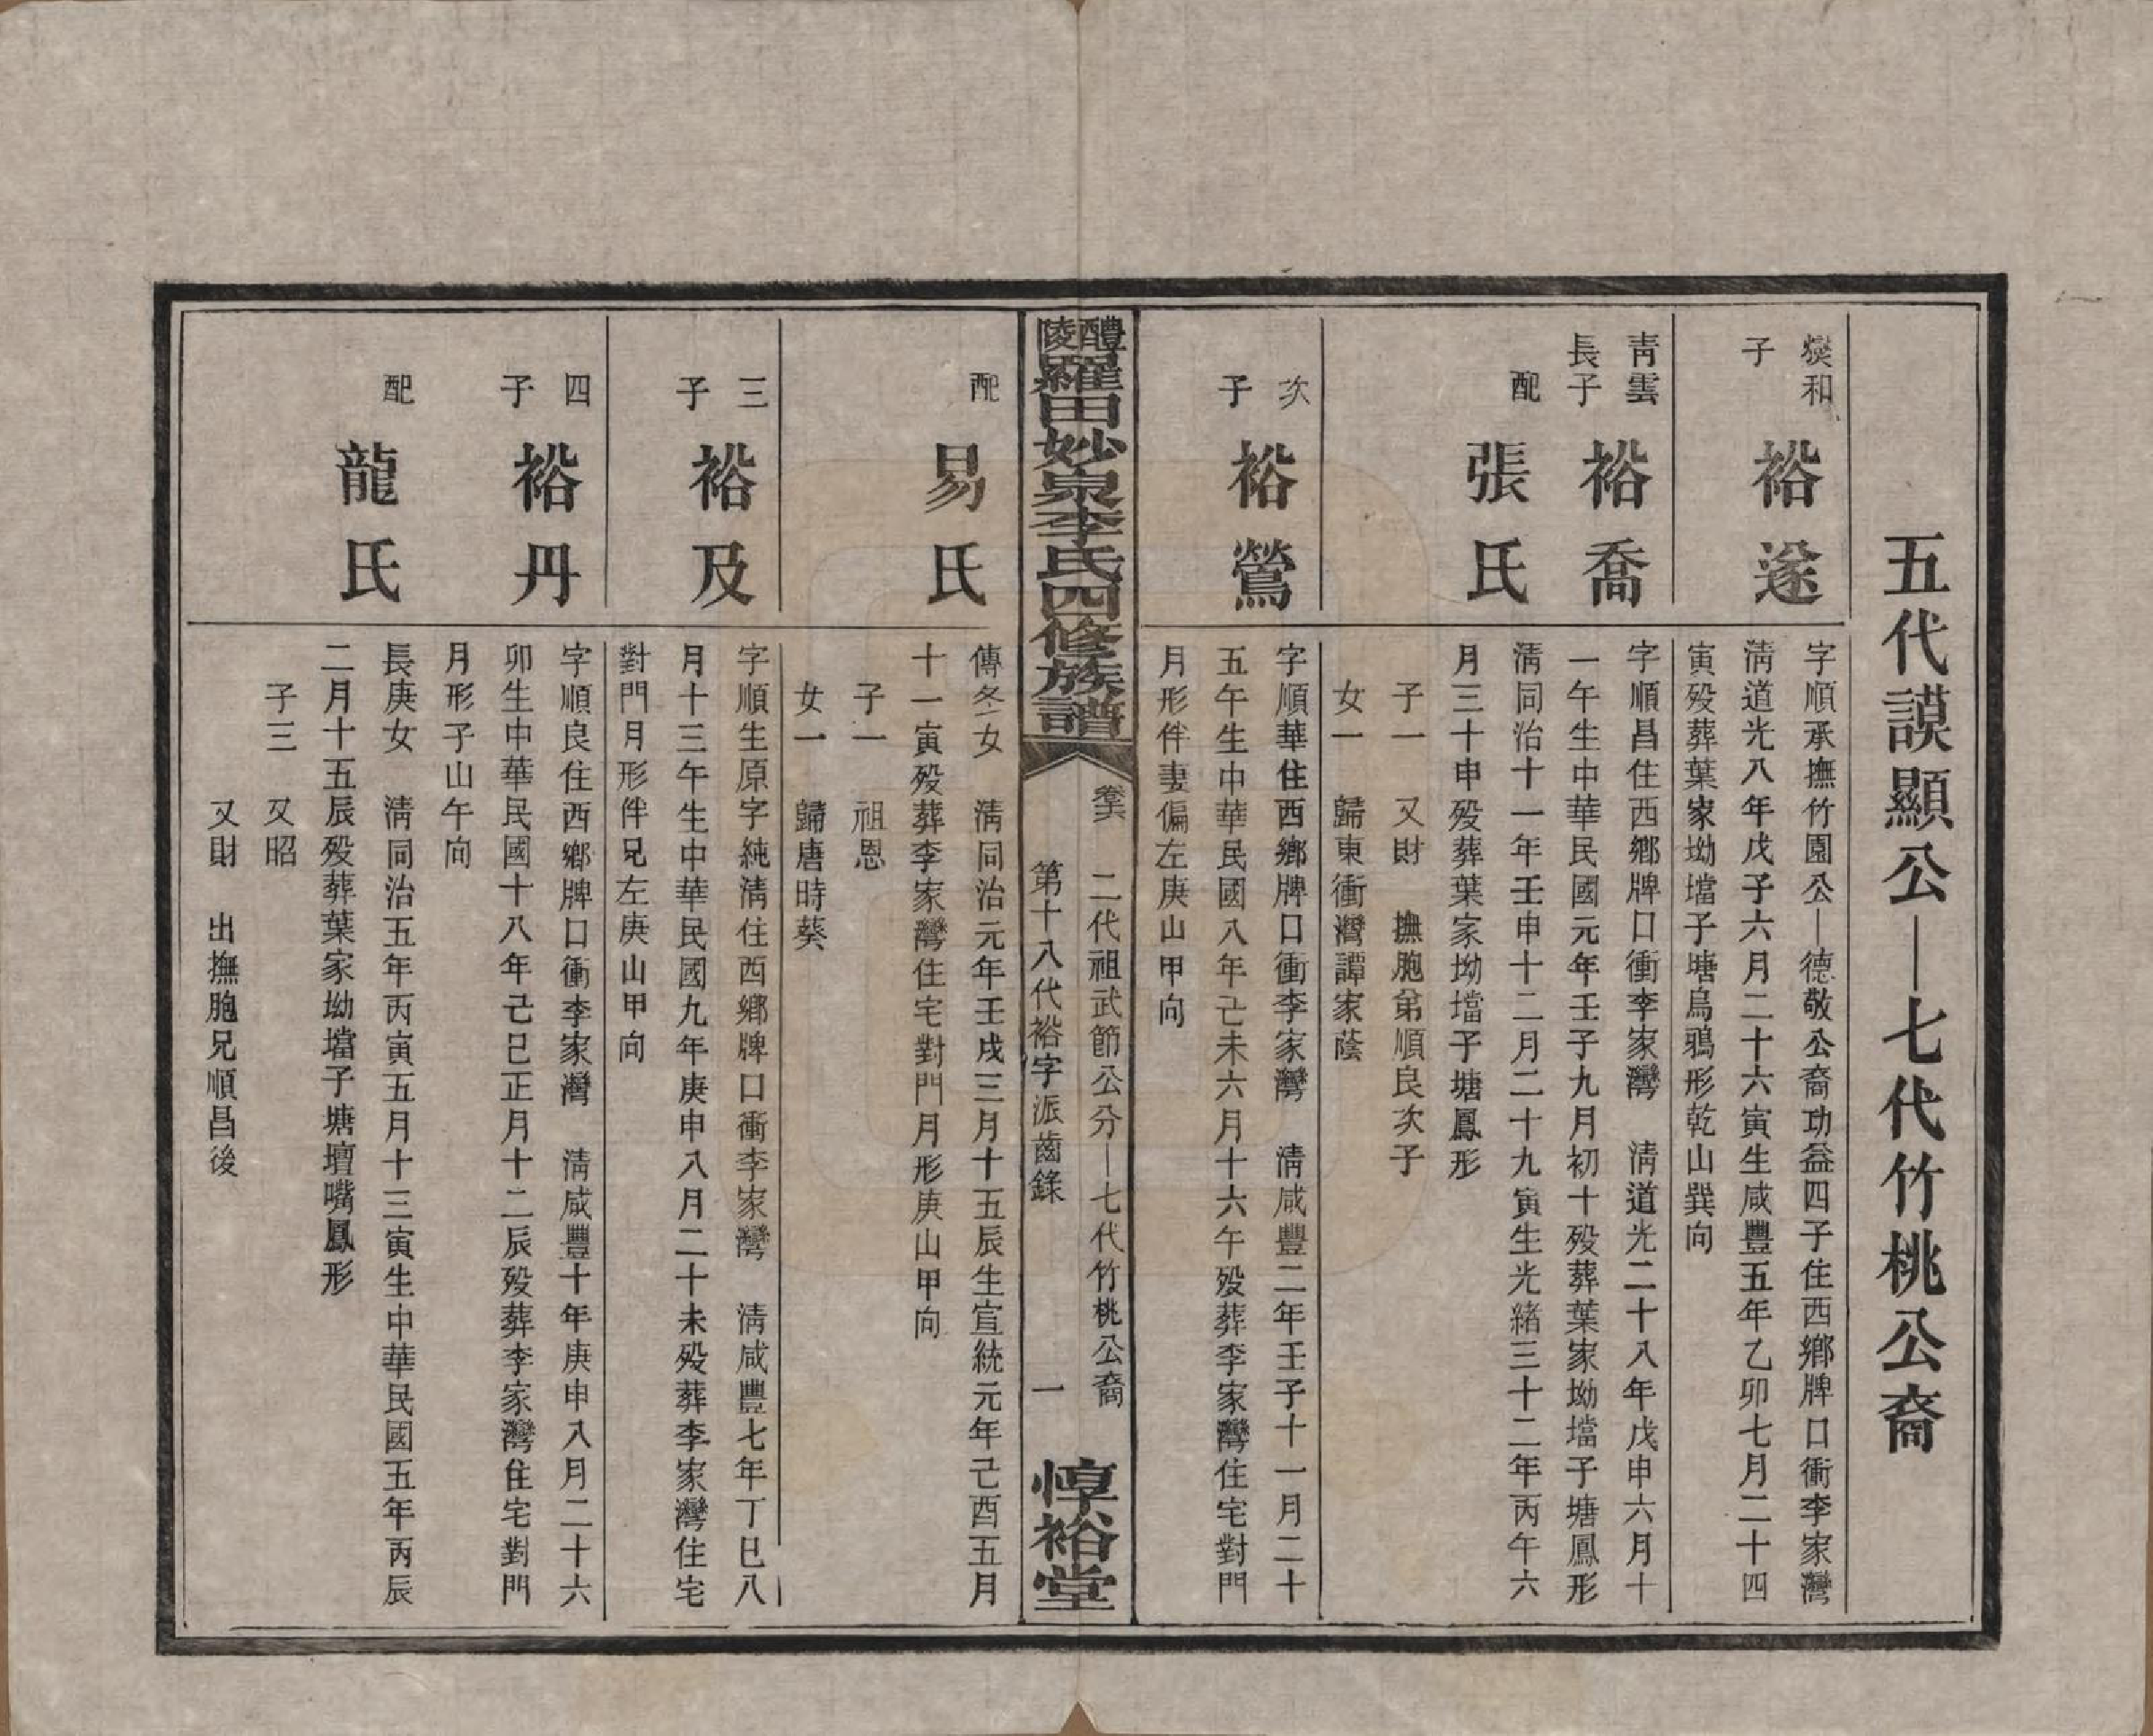 五代謨顯公—七代竹桃公裔
爕和
子
裕遂
字順承撫竹園公—德敬公裔功益四子住西鄉牌口衝李家灣
淸道光八年戊子六月二十六寅生咸豐五年乙卯七月二十四
寅歿葬葉家坳壋子塘烏鴉形乾山巽向
靑雲
長子
裕喬
字順昌住西鄉牌口衝李家灣　淸道光二十八年戊申六月十
一午生中華民國元年壬子九月初十歿葬葉家坳壋子塘鳳形
配
張氏
淸同治十一年壬申十二月二十九寅生光緒三十二年丙午六
月三十申歿葬葉家坳壋子塘鳳形
子一　又財　撫胞弟順良次子
女一　歸東衝灣譚家蔭
次
子
裕鶯
字順華住西鄉牌口衝李家灣　淸咸豐二年壬子十一月二十
五午生中華民國八年己未六月十六午歿葬李家灣住宅對門
月形伴妻偏左庚山甲向
醴陵羅田妙泉李氏四修族譜
卷六　二代祖武節公分—七代竹桃公裔
第十八代裕字派齒錄　一
惇裕堂
配
易氏
傳冬女　淸同治元年壬戌三月十五辰生宣統元年己酉五月
十一寅歿葬李家灣住宅對門月形庚山甲向
子一　祖恩
女一　歸唐時葵
三
子
裕及
字順生原字純淸住西鄉牌口衝李家灣　淸咸豐七年丁巳八
月十三午生中華民國九年庚申八月二十未歿葬李家灣住宅
對門月形伴兄左庚山甲向
四
子
裕丹
字順良住西鄉牌口衝李家灣　淸咸豐十年庚申八月二十六
卯生中華民國十八年己巳正月十二辰歿葬李家灣住宅對門
月形子山午向
配
龍氏
長庚女　淸同治五年丙寅五月十三寅生中華民國五年丙辰
二月十五辰歿葬葉家坳壋子塘壇嘴鳳形
子三　又昭
又財　出撫胞兄順昌後